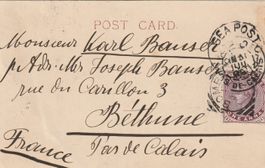 POST CARD.
Monsieur Karl Bauser
p. Adr. Mr. Joseph Bauser
rue du Carillon 3
Béthune
France Pas de Calais
SEA POST